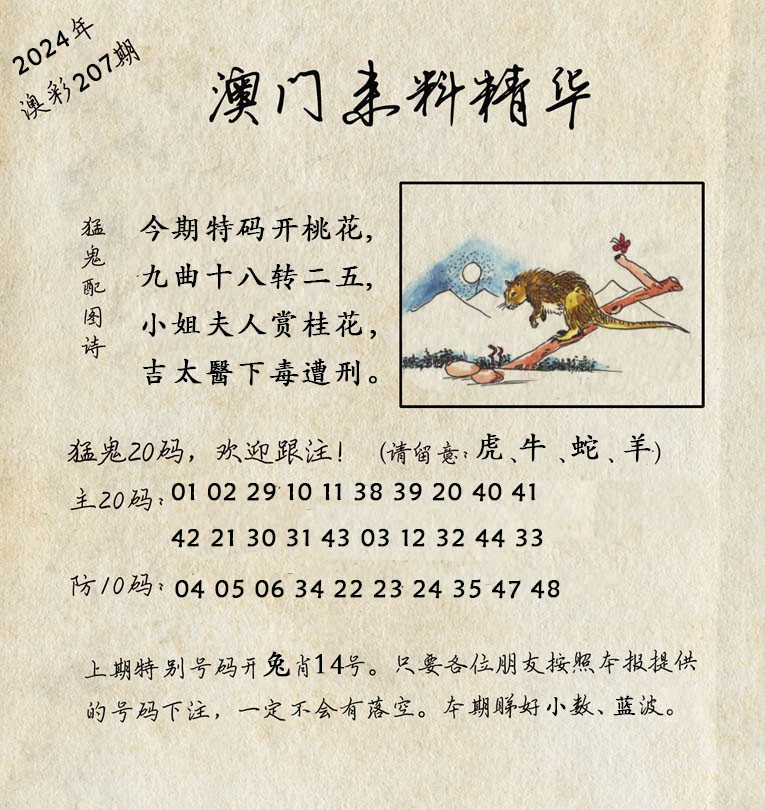 2024年
澳彩207期
澳门来料精华
猛鬼配图诗
今期特码开桃花,
九曲十八转二五,
小姐夫人赏桂花,
吉太醫下毒遭刑。
猛鬼20码，欢迎跟注！（请留意：虎、牛、蛇、羊）
主20码：01 02 29 10 11 38 39 20 40 41
42 21 30 31 43 03 12 32 44 33
防10码：04 05 06 34 22 23 24 35 47 48
上期特别号码开兔肖14号。只要各位朋友按照本报提供
的号码下注，一定不会有落空。本期睇好小数、蓝波。